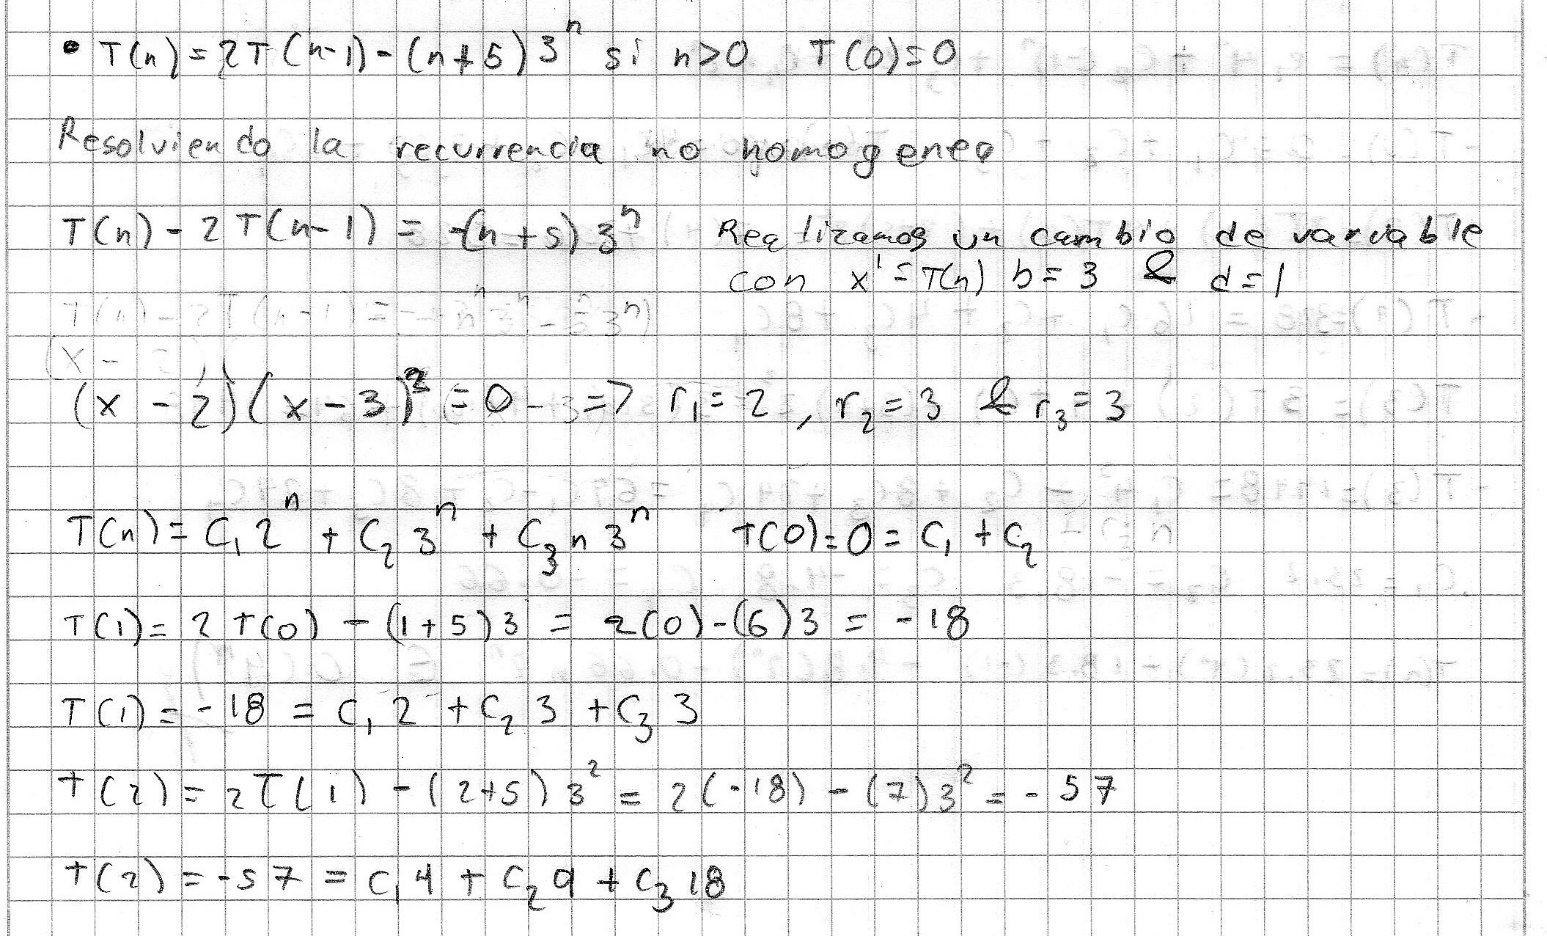 • T(n) = 2T(n-1) - (n+5)3ⁿ si n>0 T(0)=0
Resolviendo la recurrencia no homogenea
T(n) - 2T(n-1) = -(n+5)3ⁿ Realizamos un cambio de variable
con x¹=T(n) b=3 & d=1
(x - 2)(x - 3)² = 0 => r₁=2, r₂=3 & r₃=3
T(n) = C₁2ⁿ + C₂3ⁿ + C₃n3ⁿ T(0)=0=C₁+C₂
T(1) = 2T(0) - (1+5)3 = 2(0)-(6)3 = -18
T(1) = -18 = C₁2 + C₂3 + C₃3
T(2) = 2T(1) - (2+5)3² = 2(-18) - (7)3² = -57
T(2) = -57 = C₁4 + C₂9 + C₃18